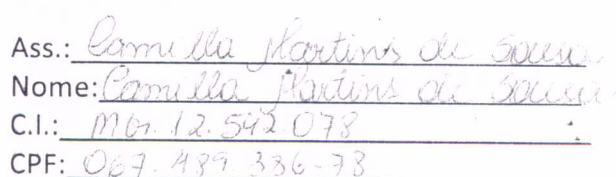 Ass.: Camilla Martins de Sousa
Nome: Camilla Martins de Sousa
C.I.: MG. 12.542.078
CPF: 067.489.386-78